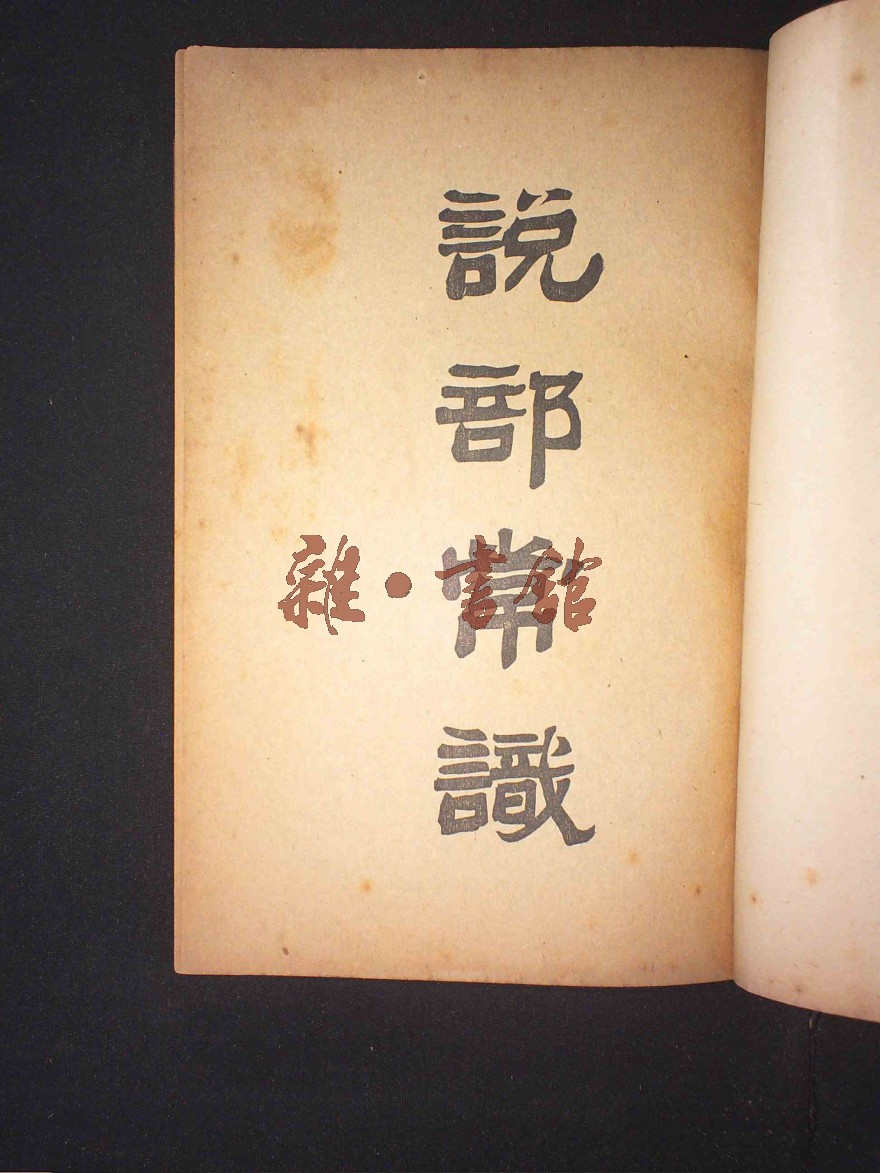 說部常識
雜·書館